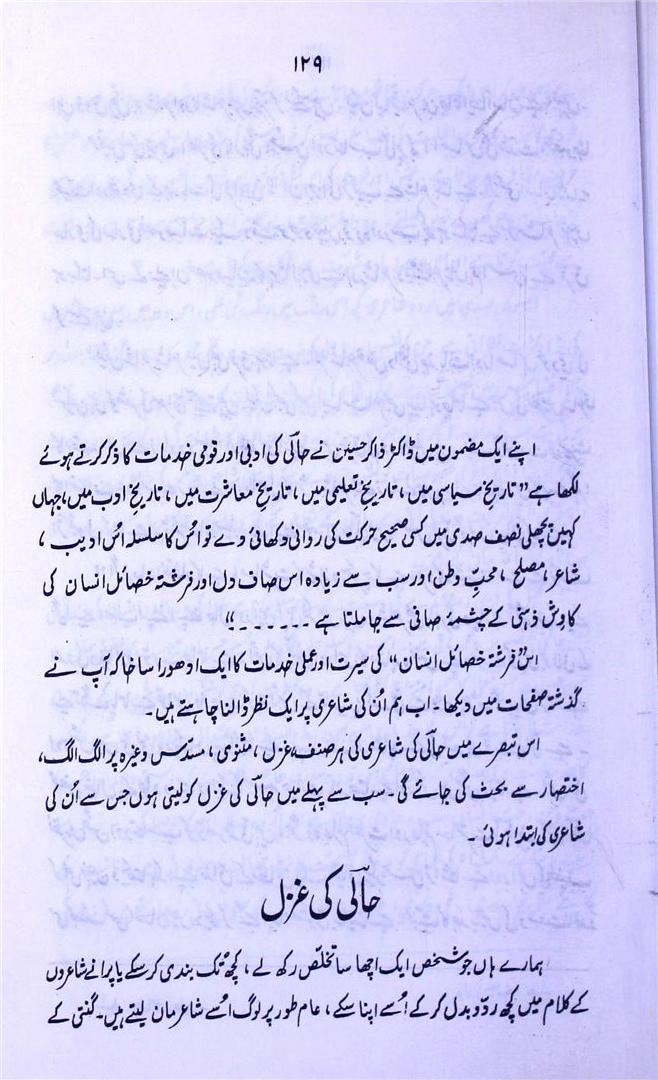 ۱۲۹
اپنے ایک مضمون میں ڈاکٹر ذاکر حسین نے حالؔی کی ادبی اور قومی خدمات کا ذکر کرتے ہوئے
لکھا ہے ”تاریخِ سیاسی میں ، تاریخِ تعلیمی میں ، تاریخِ معاشرت میں ، تاریخِ ادب میں، جہاں
کہیں پچھلی نصف صدی میں کسی صحیح حرکت کی روانی دکھائی دے تو اُس کا سلسلہ اُس ادیب ،
شاعر ، مصلح ، محبِّ وطن اور سب سے زیادہ اس صاف دل اور فرشتہ خصائل انسان کی
کاوِش ذہنی کے چشمۂ صافی سے جا ملتا ہے ۔۔۔۔۔۔۔“
اس ”فرشتہ خصائل انسان“ کی سیرت اور عملی خدمات کا ایک ادھورا سا خاکہ آپ نے
گذشتہ صفحات میں دیکھا ۔ اب ہم اُن کی شاعری پر ایک نظر ڈالنا چاہتے ہیں ۔
اس تبصرے میں حالؔی کی شاعری کی ہر صنف، غزل ، مثنوی ، مسدّس وغیرہ پر الگ الگ،
اختصار سے بحث کی جائے گی ۔ سب سے پہلے میں حالؔی کی غزل کو لیتی ہوں جس سے اُن کی
شاعری کی ابتدا ہوئی ۔
حالؔی کی غزل
ہمارے ہاں جو شخص ایک اچھا سا تخلّص رکھ لے ، کچھ تُک بندی کر سکے یا پرانے شاعروں
کے کلام میں کچھ ردّ و بدل کر کے اُسے اپنا سکے ، عام طور پر لوگ اُسے شاعر مان لیتے ہیں ۔ گنتی کے